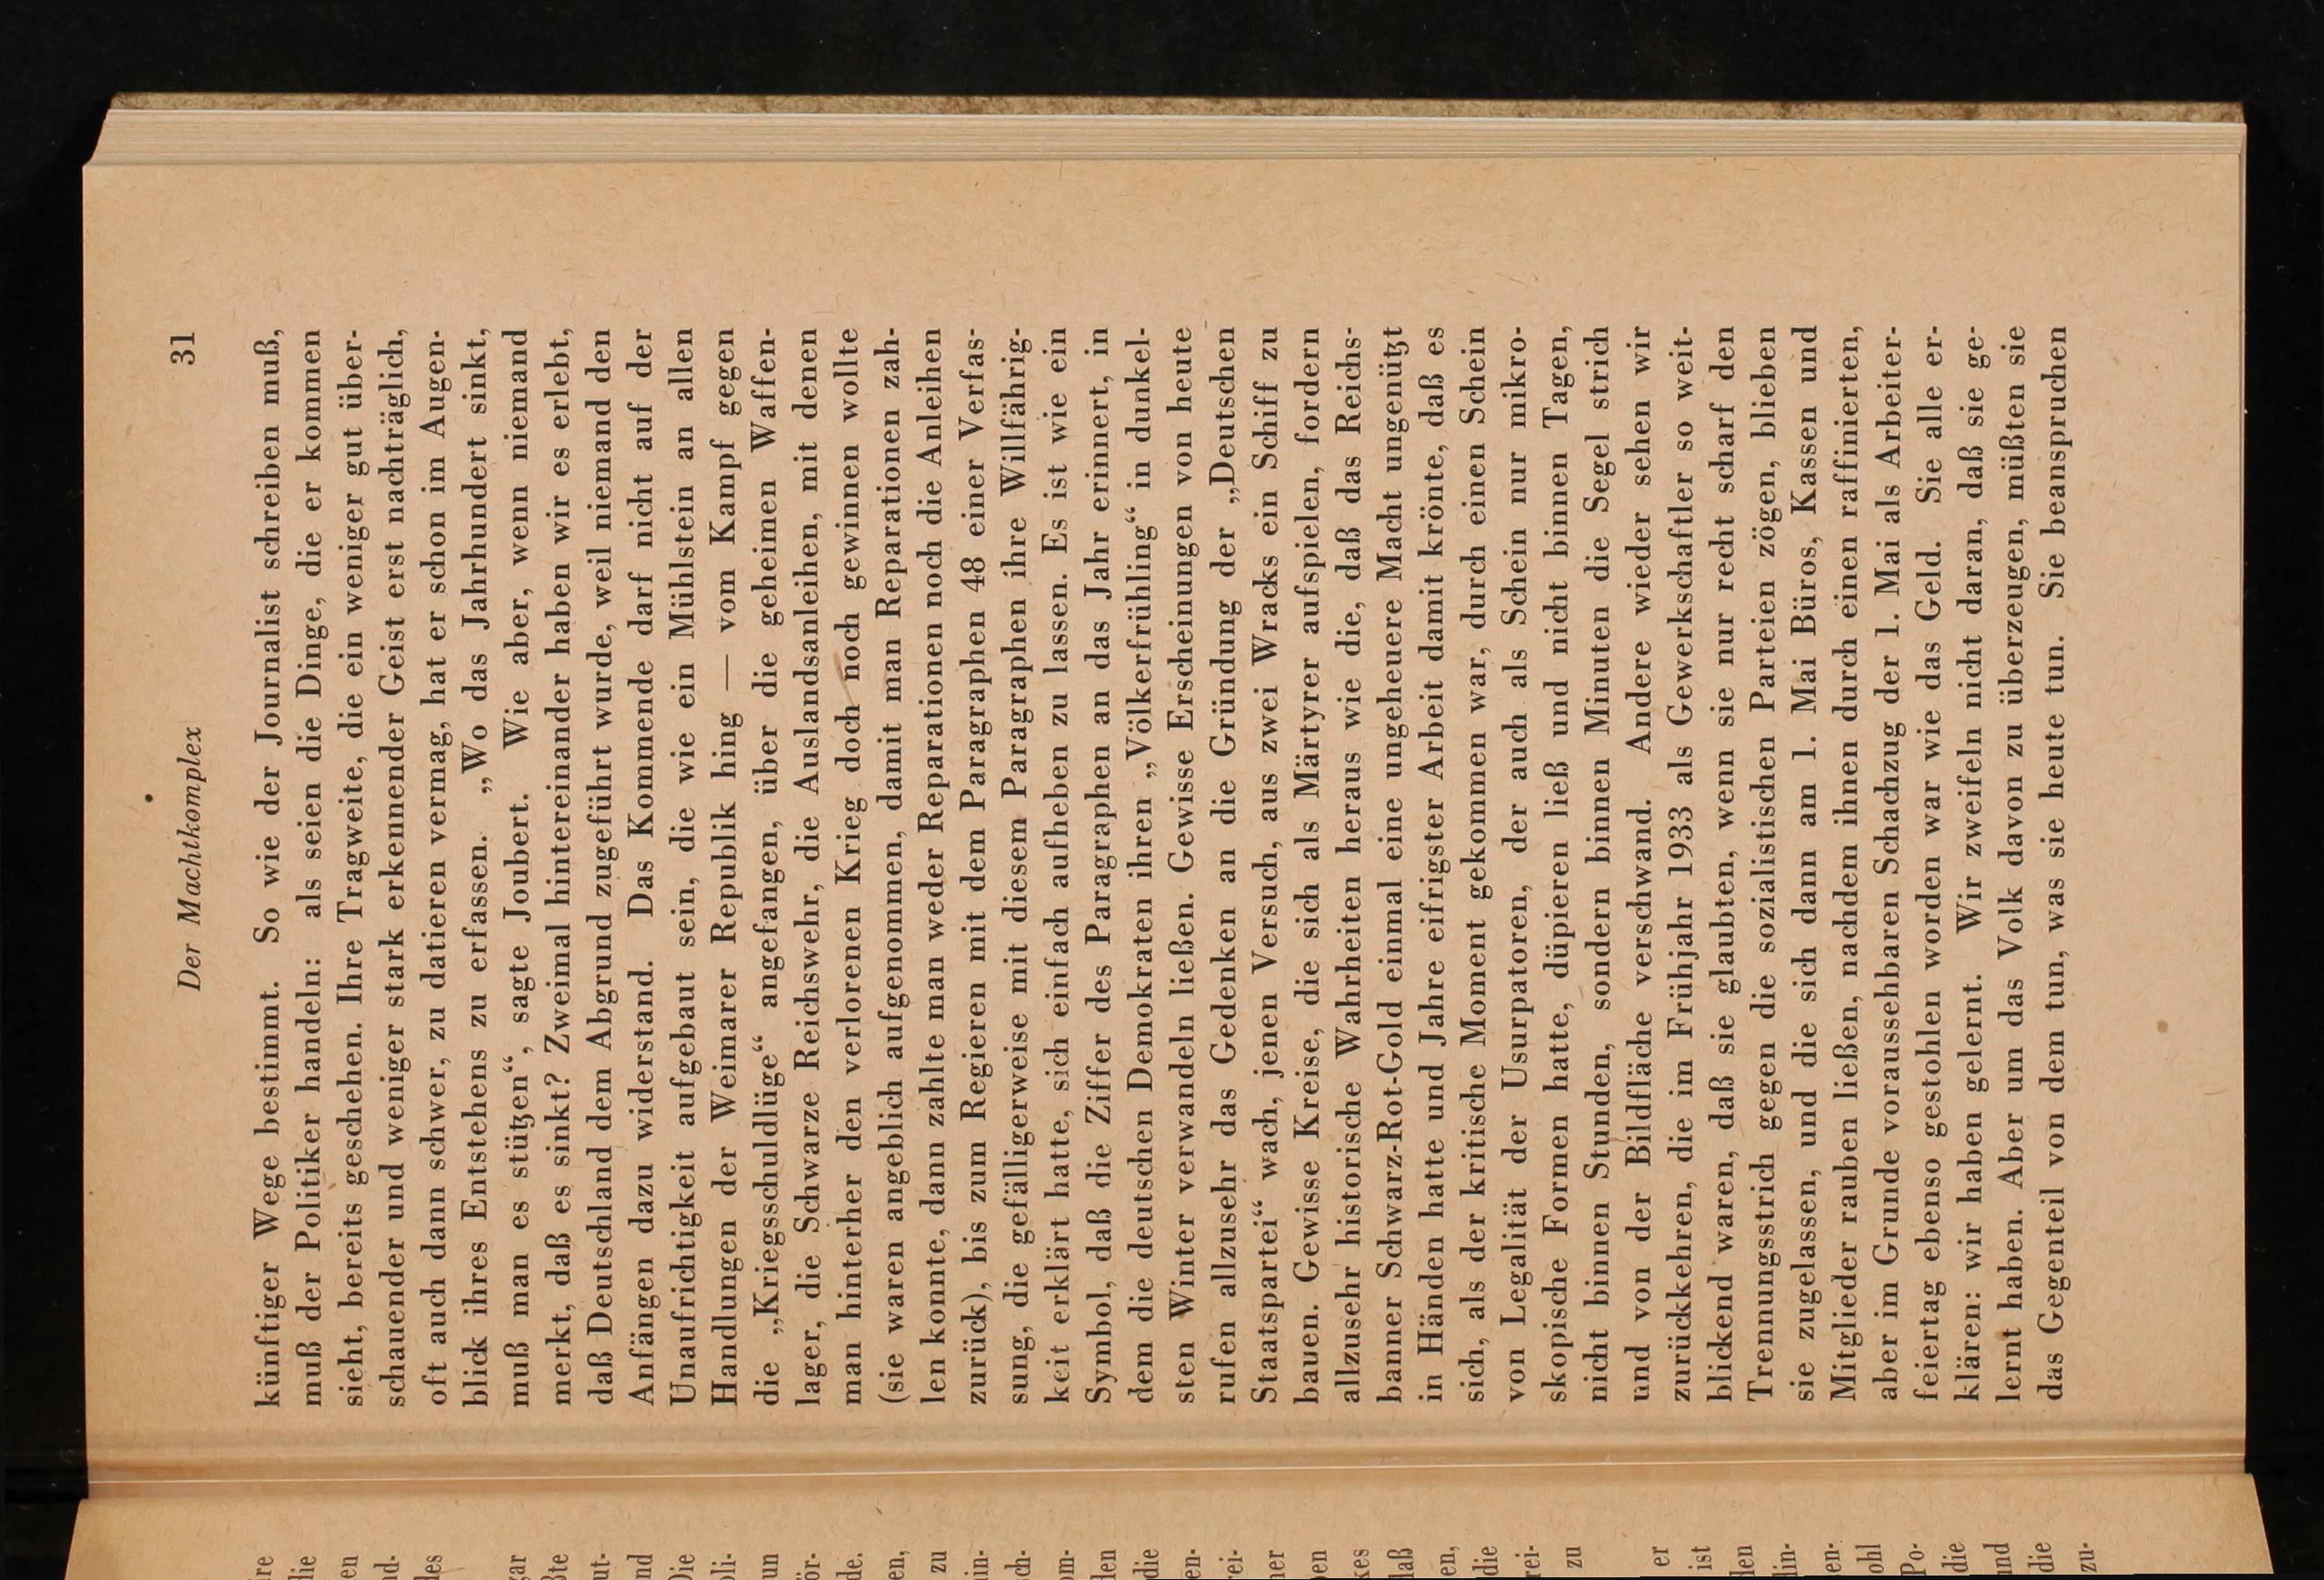 Der Machtkomplex 31
künftiger Wege bestimmt. So wie der Journalist schreiben muß,
muß der Politiker handeln: als seien die Dinge, die er kommen
sieht, bereits geschehen. Ihre Tragweite, die ein weniger gut über-
schauender und weniger stark erkennender Geist erst nachträglich,
oft auch dann schwer, zu datieren vermag, hat er schon im Augen-
blick ihres Entstehens zu erfassen. „Wo das Jahrhundert sinkt,
muß man es stützen“, sagte Joubert. Wie aber, wenn niemand
merkt, daß es sinkt? Zweimal hintereinander haben wir es erlebt,
daß Deutschland dem Abgrund zugeführt wurde, weil niemand den
Anfängen dazu widerstand. Das Kommende darf nicht auf der
Unaufrichtigkeit aufgebaut sein, die wie ein Mühlstein an allen
Handlungen der Weimarer Republik hing — vom Kampf gegen
die „Kriegsschuldlüge“ angefangen, über die geheimen Waffen-
lager, die Schwarze Reichswehr, die Auslandsanleihen, mit denen
man hinterher den verlorenen Krieg doch noch gewinnen wollte
(sie waren angeblich aufgenommen, damit man Reparationen zah-
len konnte, dann zahlte man weder Reparationen noch die Anleihen
zurück), bis zum Regieren mit dem Paragraphen 48 einer Verfas-
sung, die gefälligerweise mit diesem Paragraphen ihre Willfährig-
keit erklärt hatte, sich einfach aufheben zu lassen. Es ist wie ein
Symbol, daß die Ziffer des Paragraphen an das Jahr erinnert, in
dem die deutschen Demokraten ihren „Völkerfrühling“ in dunkel-
sten Winter verwandeln ließen. Gewisse Erscheinungen von heute
rufen allzusehr das Gedenken an die Gründung der „Deutschen
Staatspartei“ wach, jenen Versuch, aus zwei Wracks ein Schiff zu
bauen. Gewisse Kreise, die sich als Märtyrer aufspielen, fordern
allzusehr historische Wahrheiten heraus wie die, daß das Reichs-
banner Schwarz-Rot-Gold einmal eine ungeheuere Macht ungenützt
in Händen hatte und Jahre eifrigster Arbeit damit krönte, daß es
sich, als der kritische Moment gekommen war, durch einen Schein
von Legalität der Usurpatoren, der auch als Schein nur mikro-
skopische Formen hatte, düpieren ließ und nicht binnen Tagen,
nicht binnen Stunden, sondern binnen Minuten die Segel strich
und von der Bildfläche verschwand. Andere wieder sehen wir
zurückkehren, die im Frühjahr 1933 als Gewerkschaftler so weit-
blickend waren, daß sie glaubten, wenn sie nur recht scharf den
Trennungsstrich gegen die sozialistischen Parteien zögen, blieben
sie zugelassen, und die sich dann am 1. Mai Büros, Kassen und
Mitglieder rauben ließen, nachdem ihnen durch einen raffinierten,
aber im Grunde voraussehbaren Schachzug der 1. Mai als Arbeiter-
feiertag ebenso gestohlen worden war wie das Geld. Sie alle er-
klären: wir haben gelernt. Wir zweifeln nicht daran, daß sie ge-
lernt haben. Aber um das Volk davon zu überzeugen, müßten sie
das Gegenteil von dem tun, was sie heute tun. Sie beanspruchen